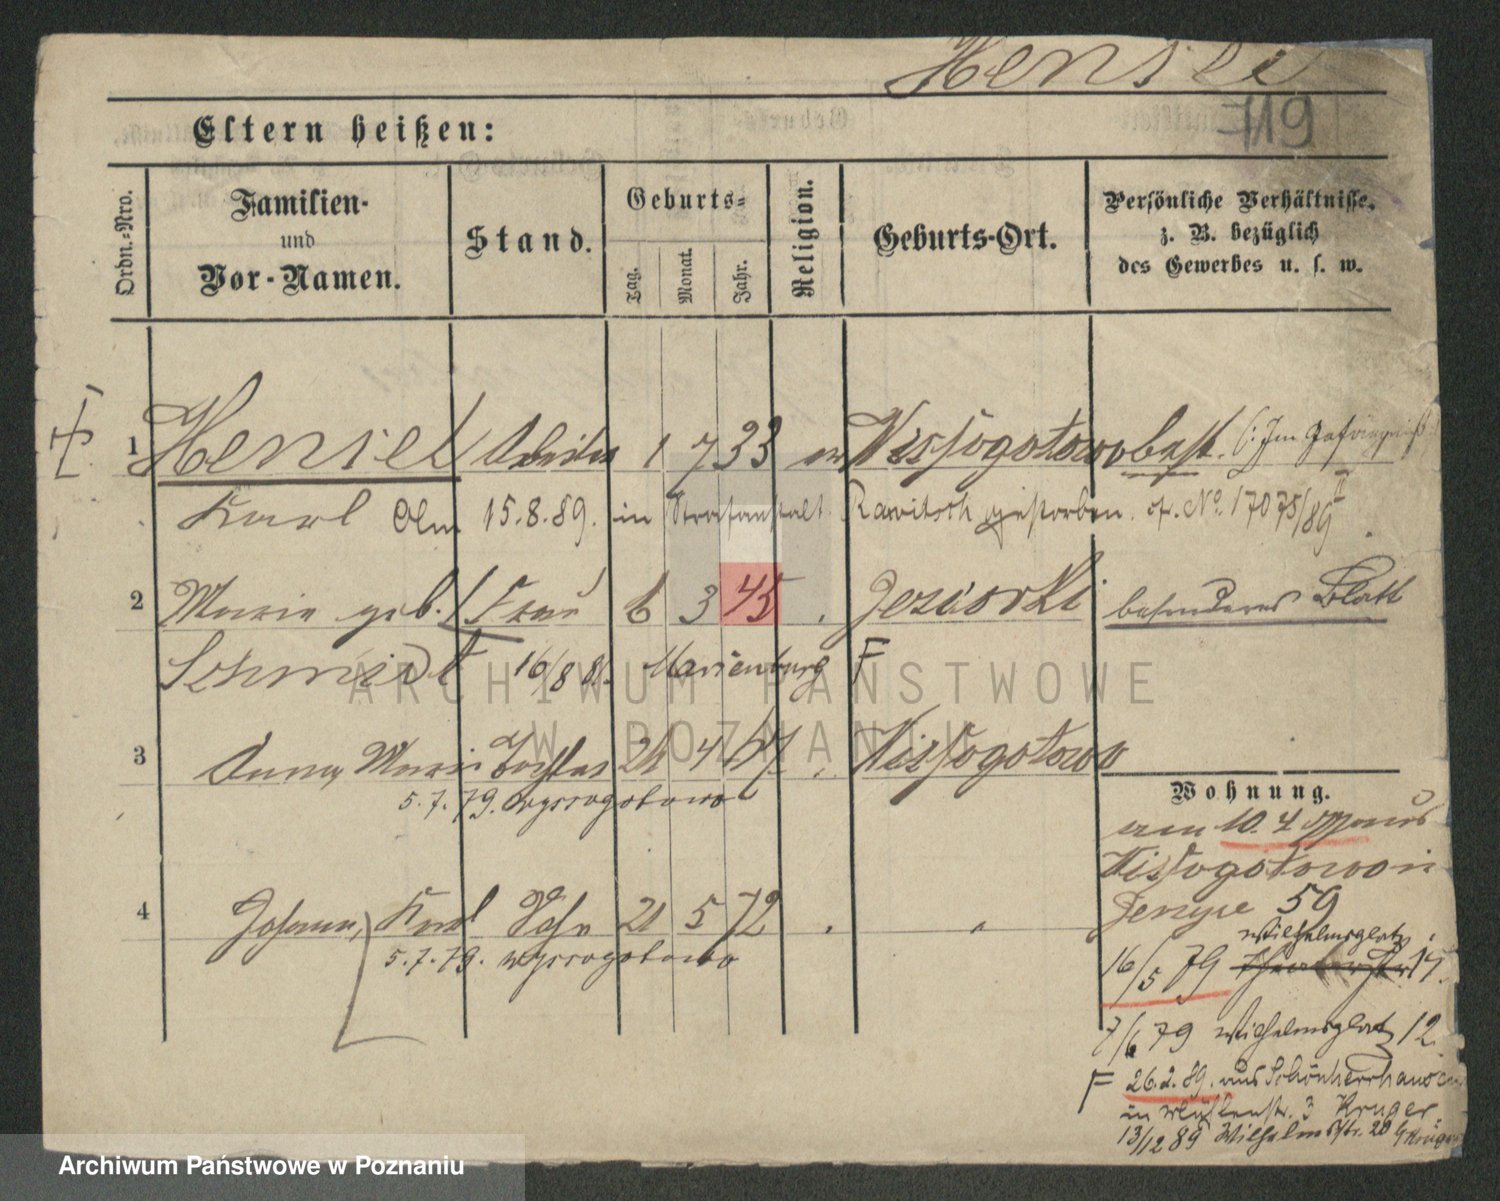 Hensel
719
Eltern heißen:
Ordn.-Nro.
Familien-
und
Vor-Namen.
Stand.
Geburts-
Tag.
Monat.
Jahr.
Religion.
Geburts-Ort.
Persönliche Verhältnisse,
z. B. bezüglich
des Gewerbes u. s. w.
1 Hensel 1 7 33 ev Wissogotowo best. (: Im Gefängniß
Karl 15.8.89. in Strafanstalt Rawitsch gestorben. cf. No. 17075/89 II
2 Marie geb. Frau 6 3 45 Jeziorki besonderes Blatt
Schmidt 16/8 81. Marienburg F
3 Anna, Marie Tochter 21 4 67 Wissogotowo
5.7.79. Wyssogotowo
4 Johann, Karl Sohn 21 5 72
5.7.79. Wyssogotowo
Wohnung.
am 10.4 aus
Wissogotowo in
Jerzyce 59
Wilhelmsplatz
16/5 79 17.
7/6 79 Wilhelmsplatz 12.
F 26.2.89. aus Schönherrhausen
in Mühlenstr. 3 Kruger.
13/12 89 Wilhelmstr. 20 b/ Krüger
ARCHIWUM PAŃSTWOWE
W POZNANIU
Archiwum Państwowe w Poznaniu